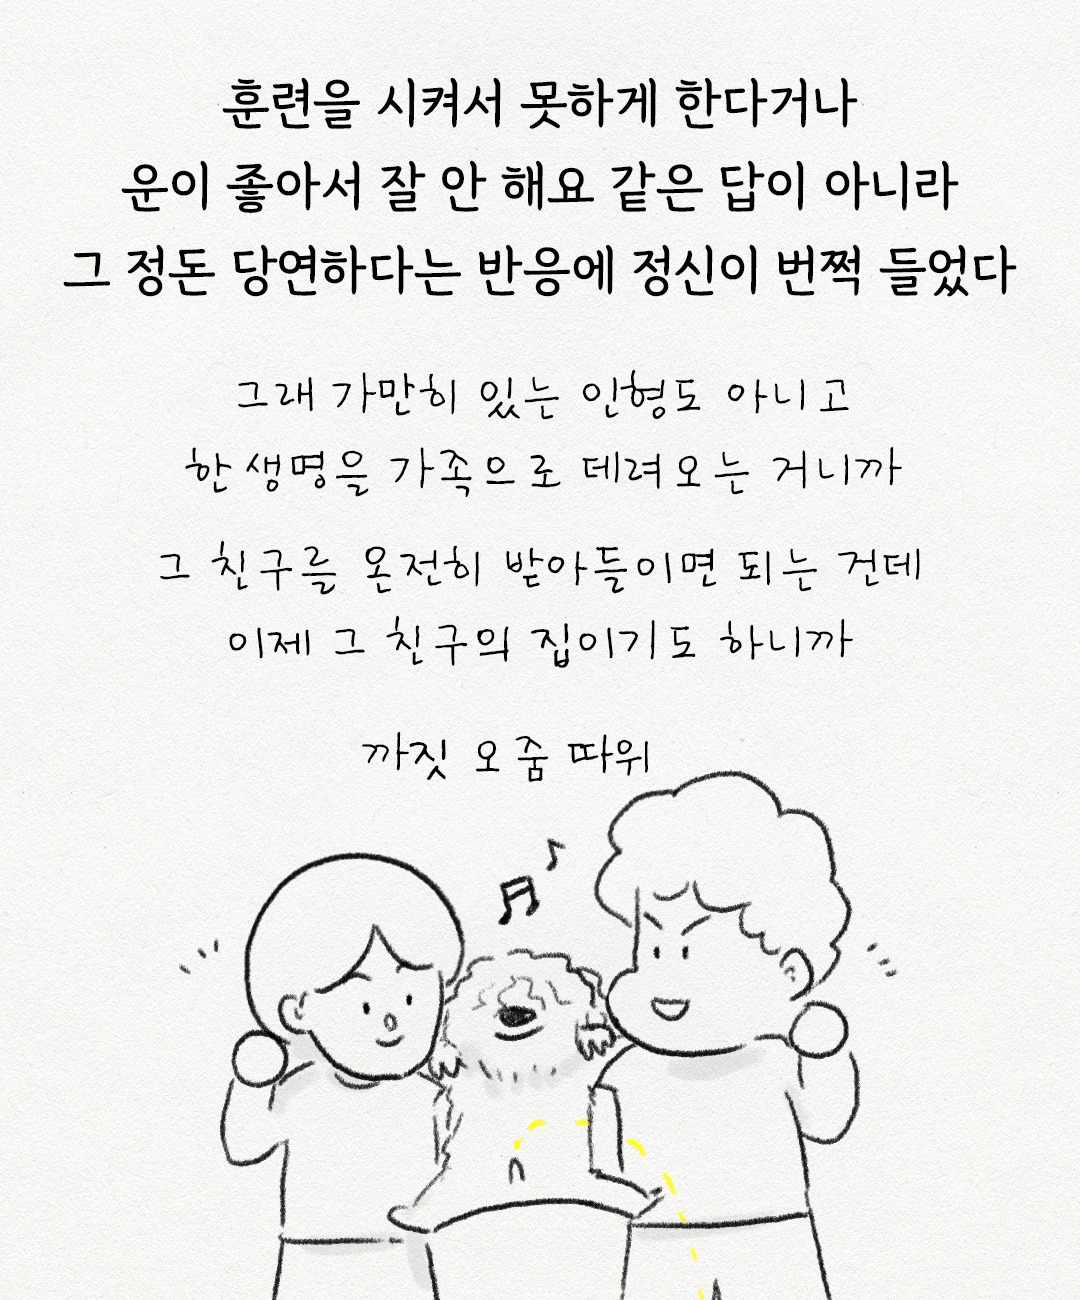 훈련을 시켜서 못하게 한다거나
운이 좋아서 잘 안 해요 같은 답이 아니라
그 정돈 당연하다는 반응에 정신이 번쩍 들었다
그래 가만히 있는 인형도 아니고
한 생명을 가족으로 데려오는 거니까
그 친구를 온전히 받아들이면 되는 건데
이제 그 친구의 집이기도 하니까
까짓 오줌 따위